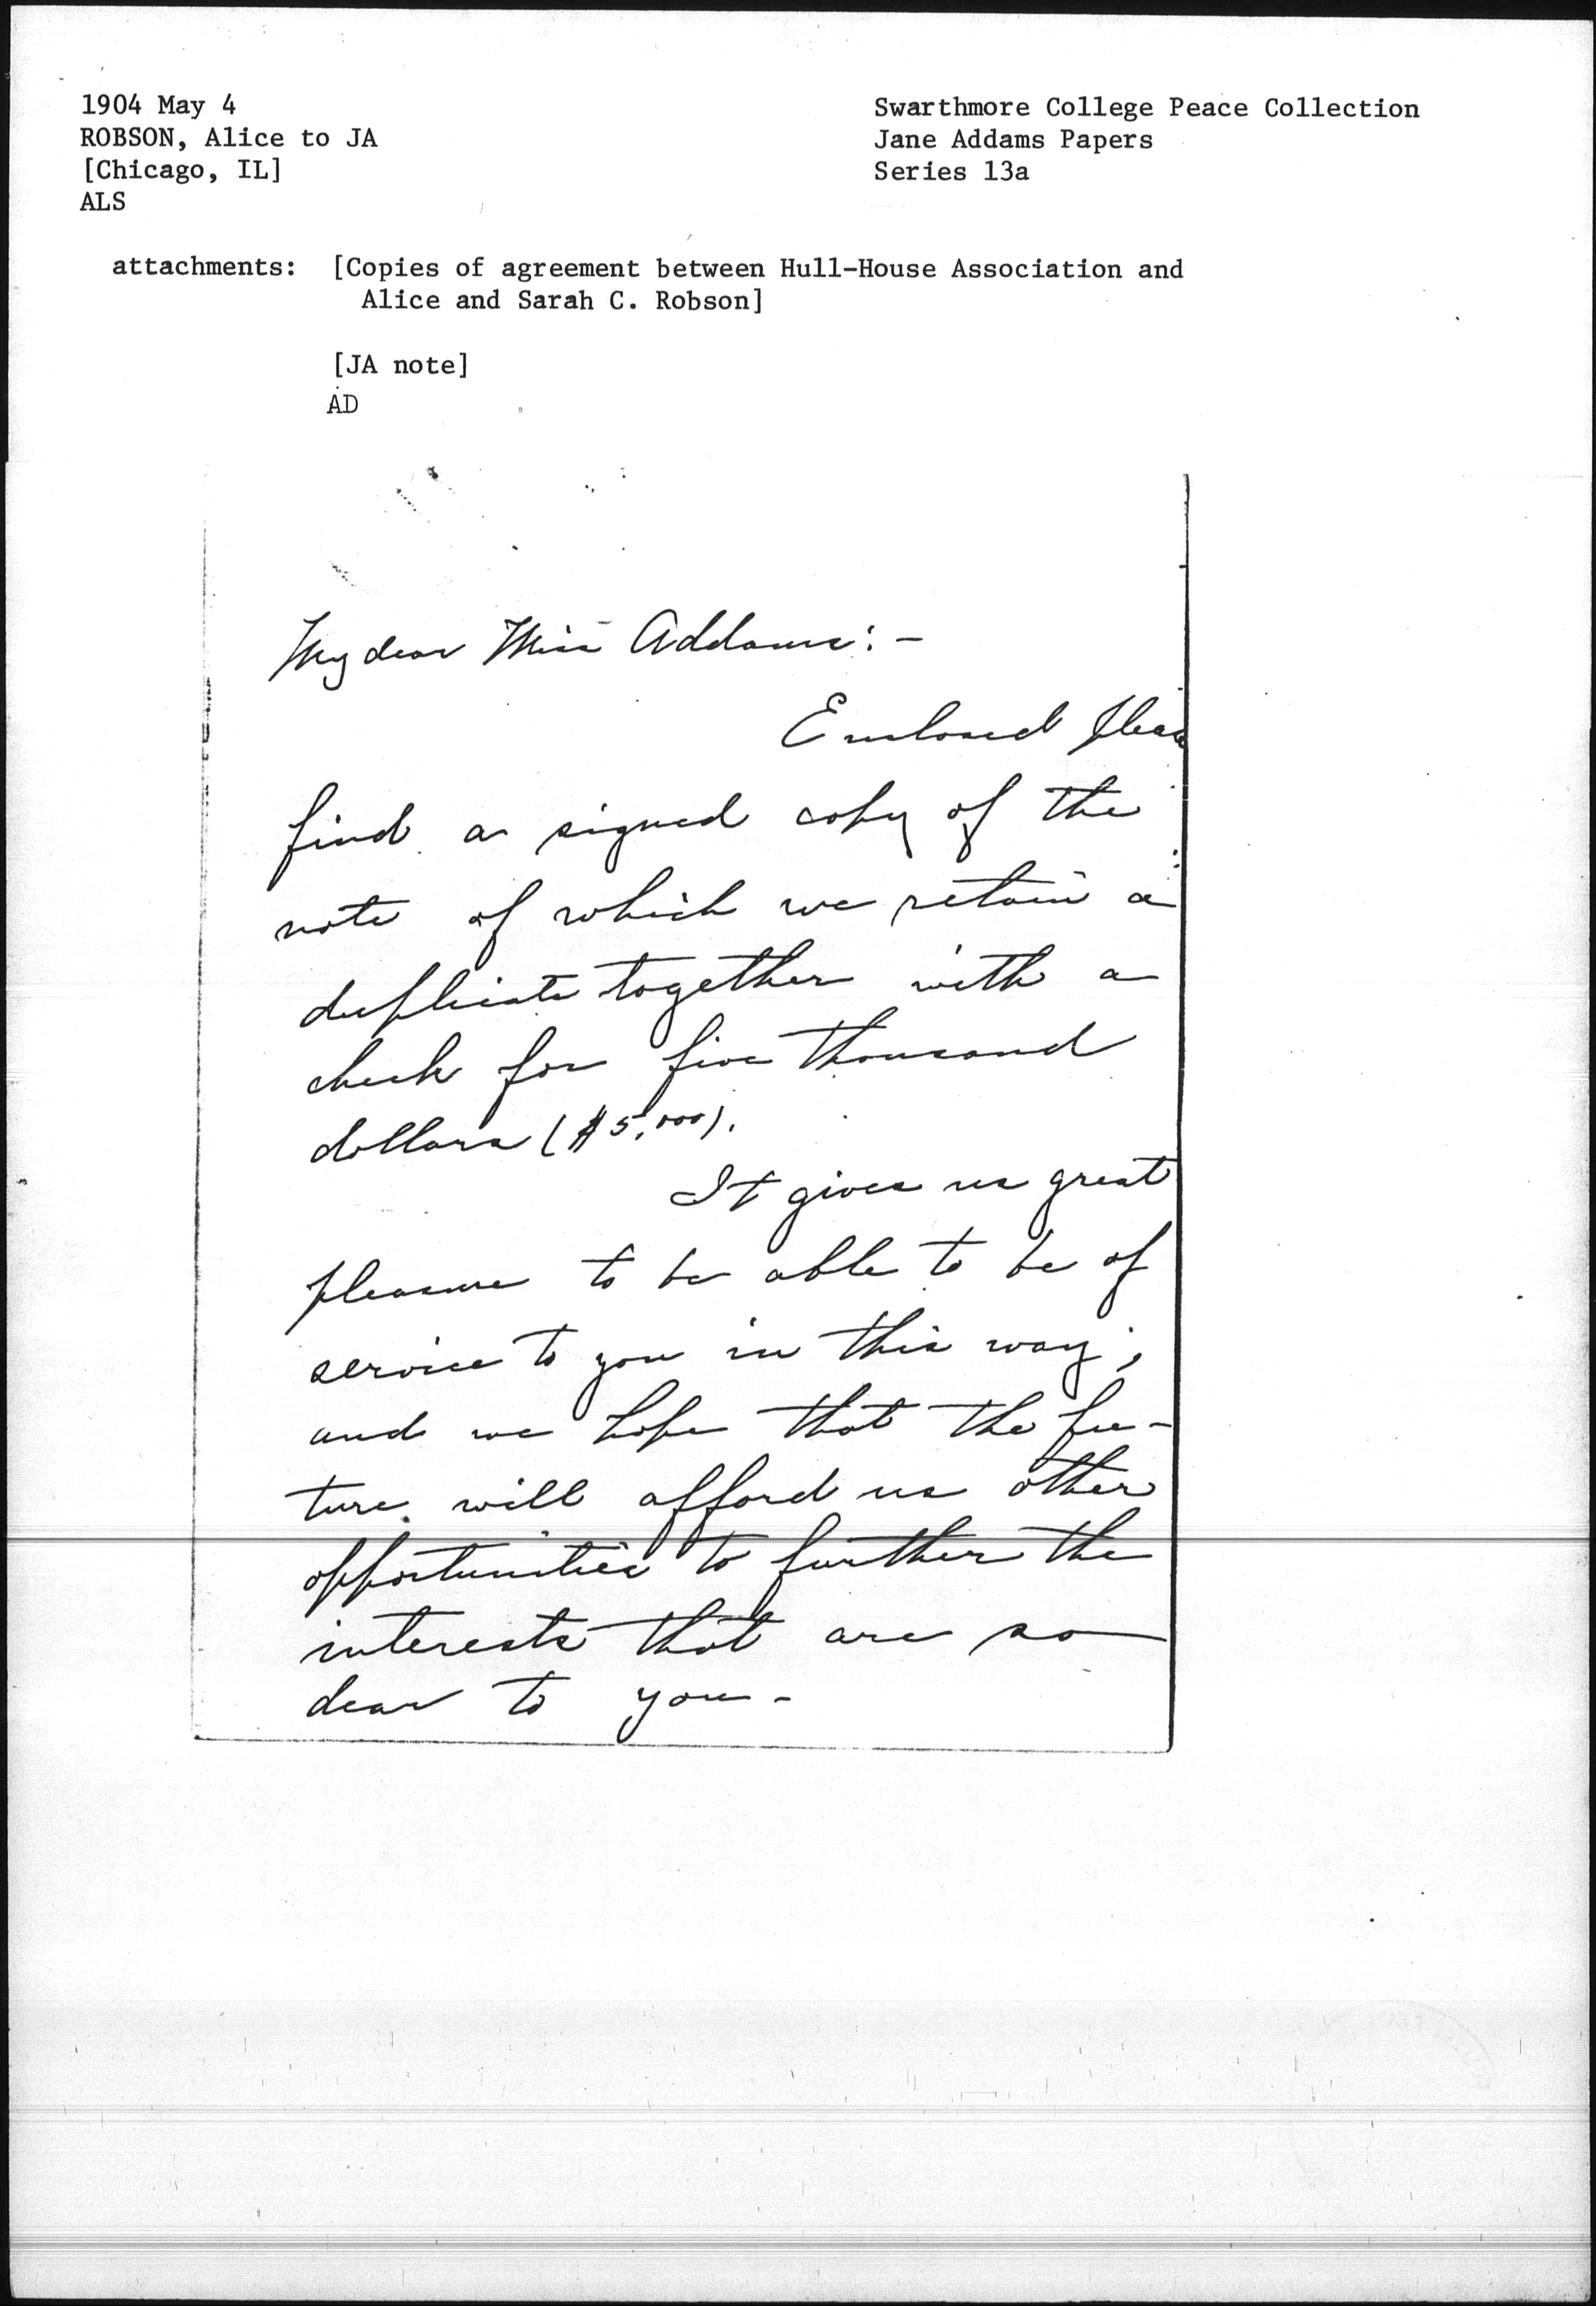 1904 May 4
ROBSON, Alice to JA
[Chicago, IL]
ALS
Swarthmore College Peace Collection
Jane Addams Papers
Series 13a
attachments: [Copies of agreement between Hull-House Association and
Alice and Sarah C. Robson]
[JA note]
AD
My dear Miss Addams:-
Enclosed please
find a signed copy of the
note of which we retain a
duplicate together with a
check for five thousand
dollars ($5,000).
It gives us great
pleasure to be able to be of
service to you in this way;
and we hope that the fu-
ture will afford us other
opportunities to further the
interests that are so
dear to you-